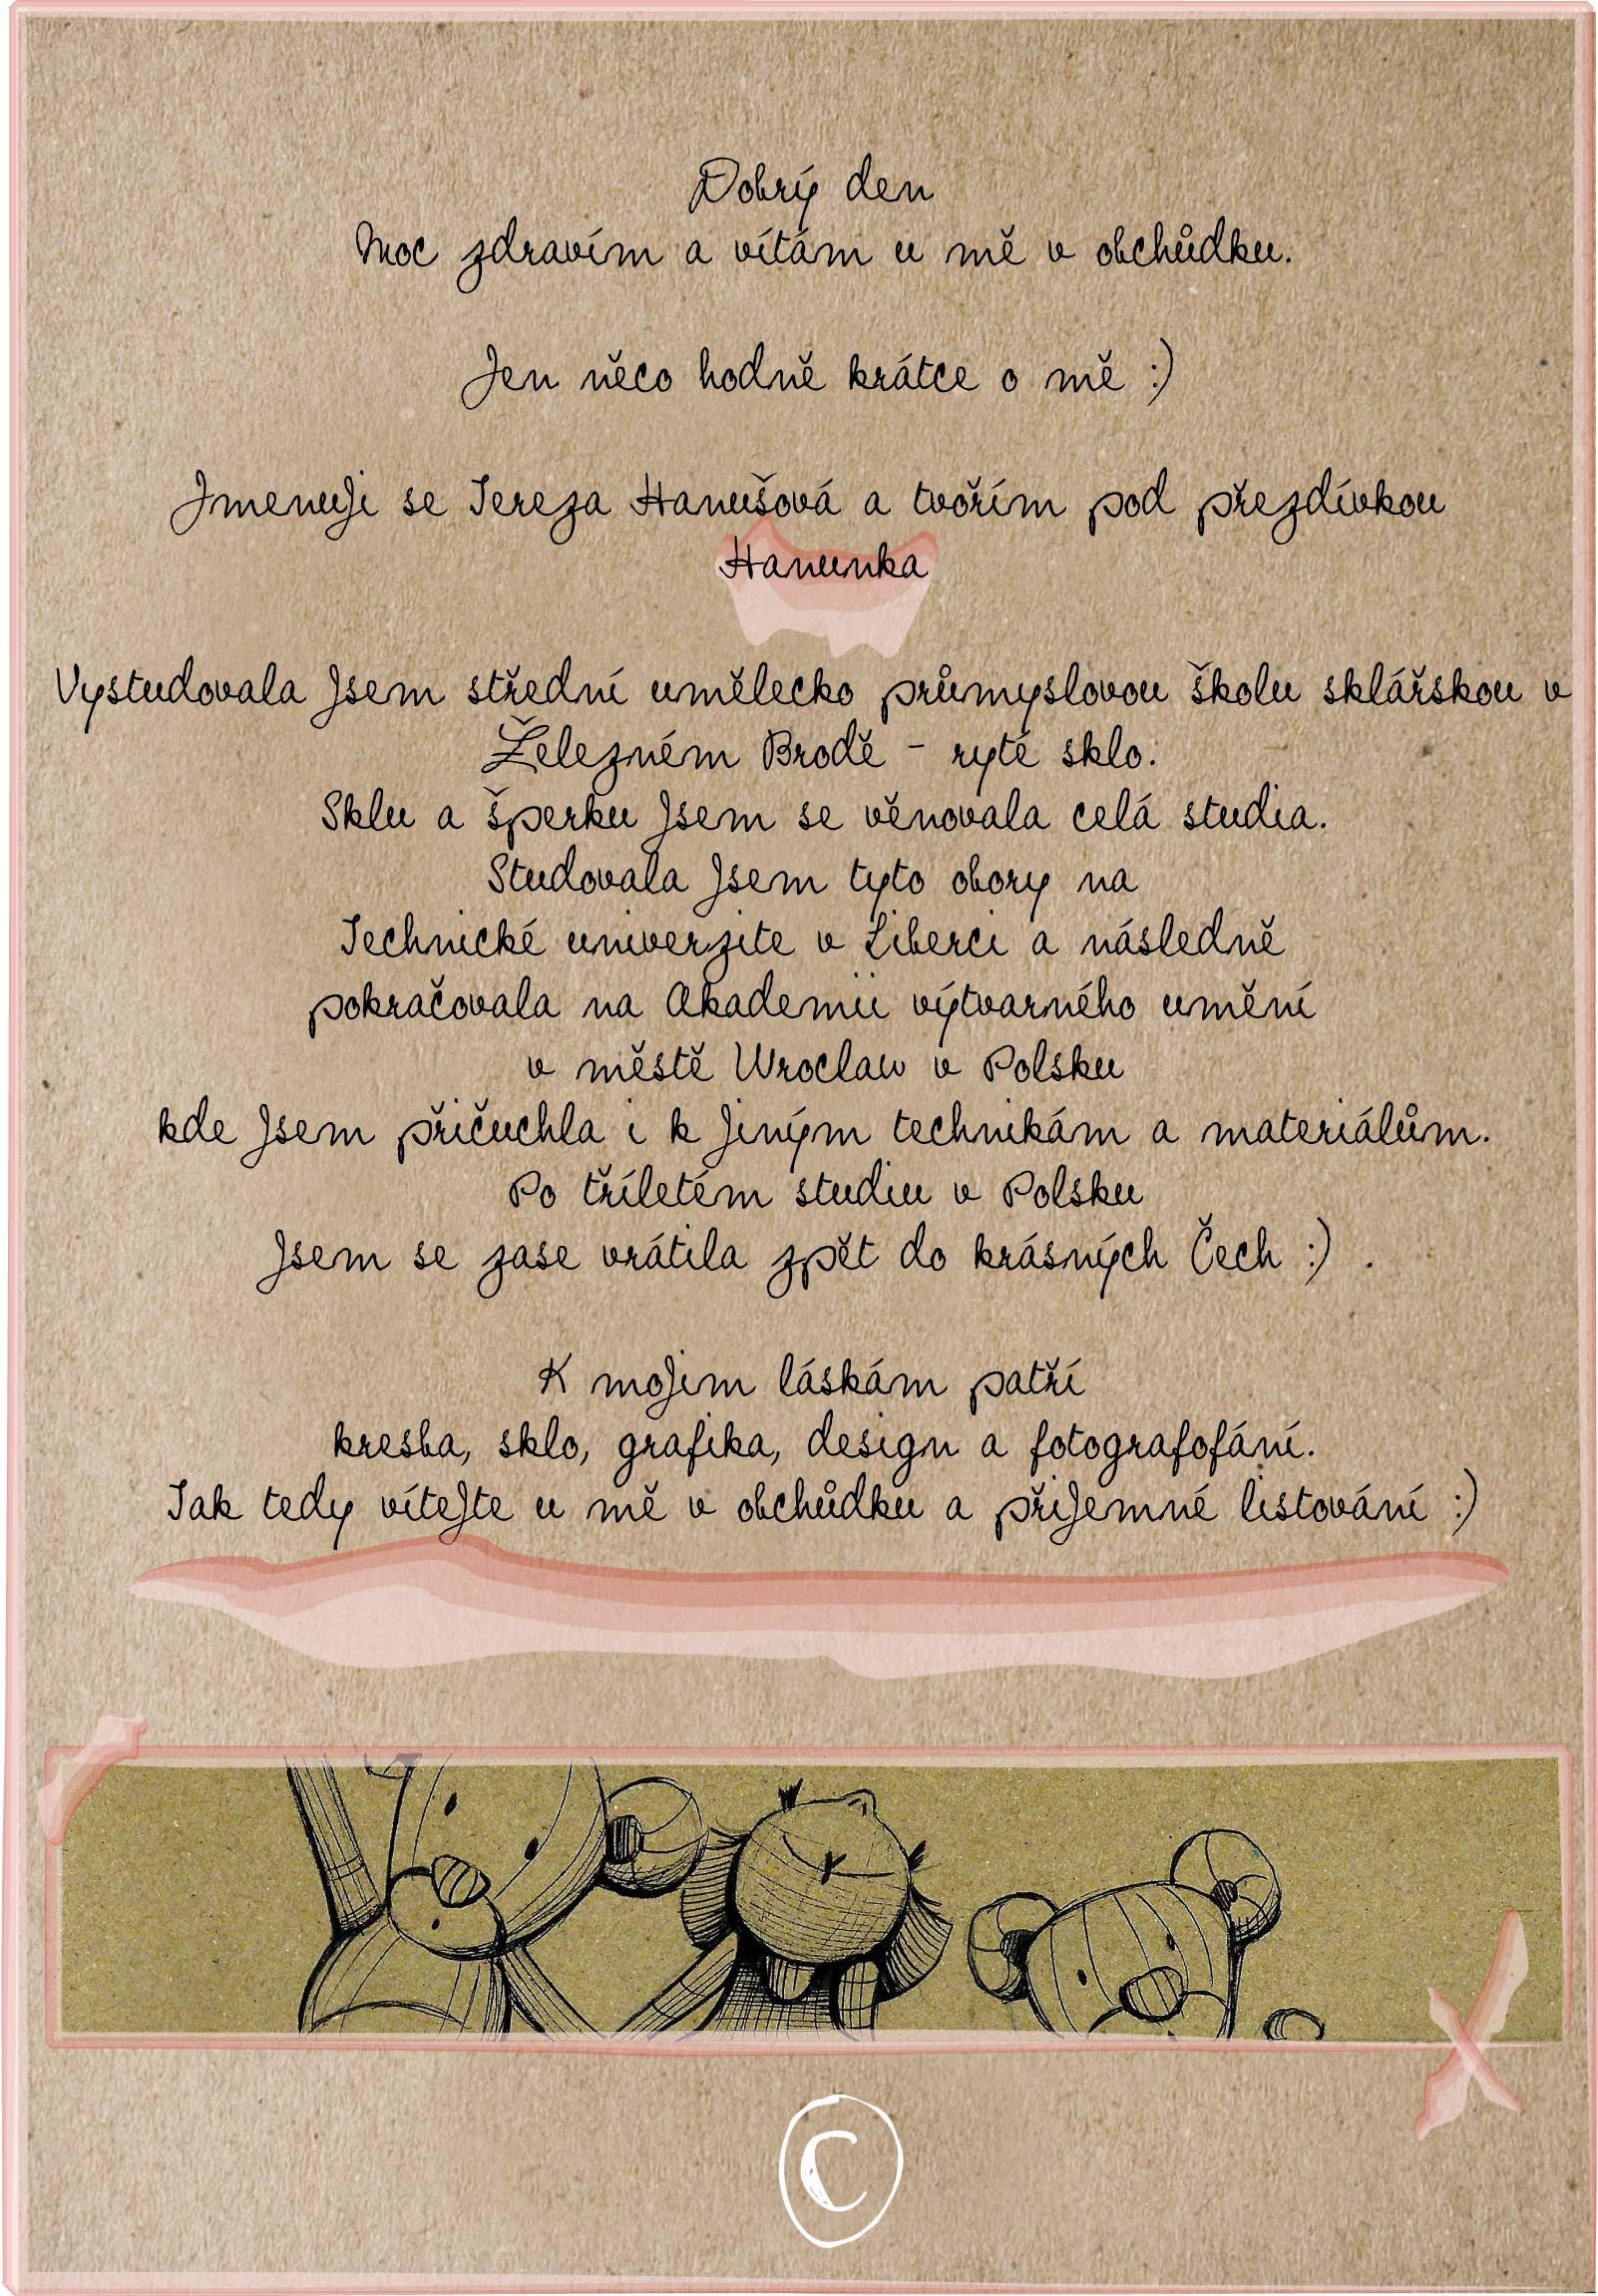 Dobrý den
Moc zdravím a vítám u mě v obchůdku.
Jen něco hodně krátce o mě :)
Jmenuji se Tereza Hanušová a tvořím pod přezdívkou
Hanunka
Vystudovala jsem střední umělecko průmyslovou školu sklářskou v
Železném Brodě - ryté sklo.
Sklu a šperku jsem se věnovala celá studia.
Studovala jsem tyto obory na
Technické univerzite v Liberci a následně
pokračovala na Akademii výtvarného umění
v městě Wroclaw v Polsku
kde jsem přičuchla i k jiným technikám a materiálům.
Po tříletém studiu v Polsku
jsem se zase vrátila zpět do krásných Čech :) .
K mojim láskám patří
kresba, sklo, grafika, design a fotografofání.
Tak tedy vítejte u mě v obchůdku a přijemné listování :)
©